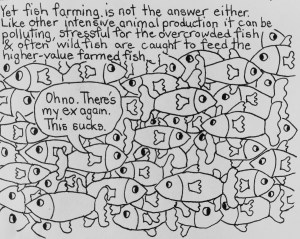 Yet fish farming is not the answer either.
Like other intensive animal production it can be
polluting, stressful for the overcrowded fish
& often wild fish are caught to feed the
higher-value farmed fish.
Oh no. There's
my ex again.
This sucks.